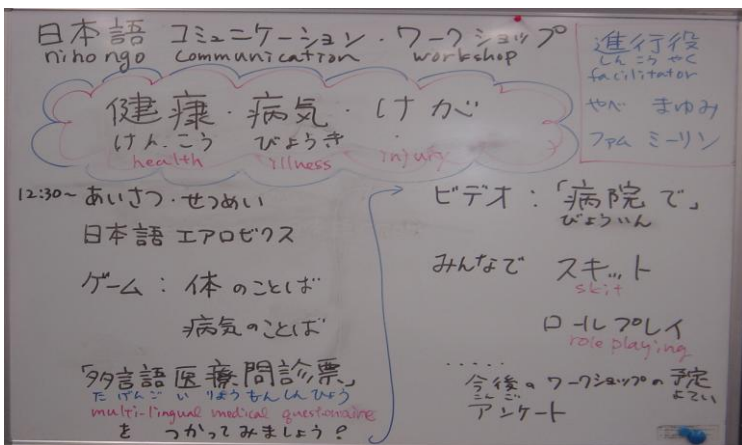 日本語 コミュニケーション・ワークショップ
nihongo communication workshop
進行役
しんこうやく
facilitator
やべ まゆみ
ファム ミーリン
健康・病気・けが
けんこう びょうき
health illness injury
12:30~ あいさつ・せつめい
日本語 エアロビクス
ゲーム:体のことば
病気のことば
「多言語医療問診票」
たげんごいりょうもんしんひょう
multi-lingual medical questionaire
を つかってみましょう?
ビデオ:「病院で」
びょういん
みんなで スキット
skit
ロールプレイ
role playing
.....
今後のワークショップの予定
こんご よてい
アンケート